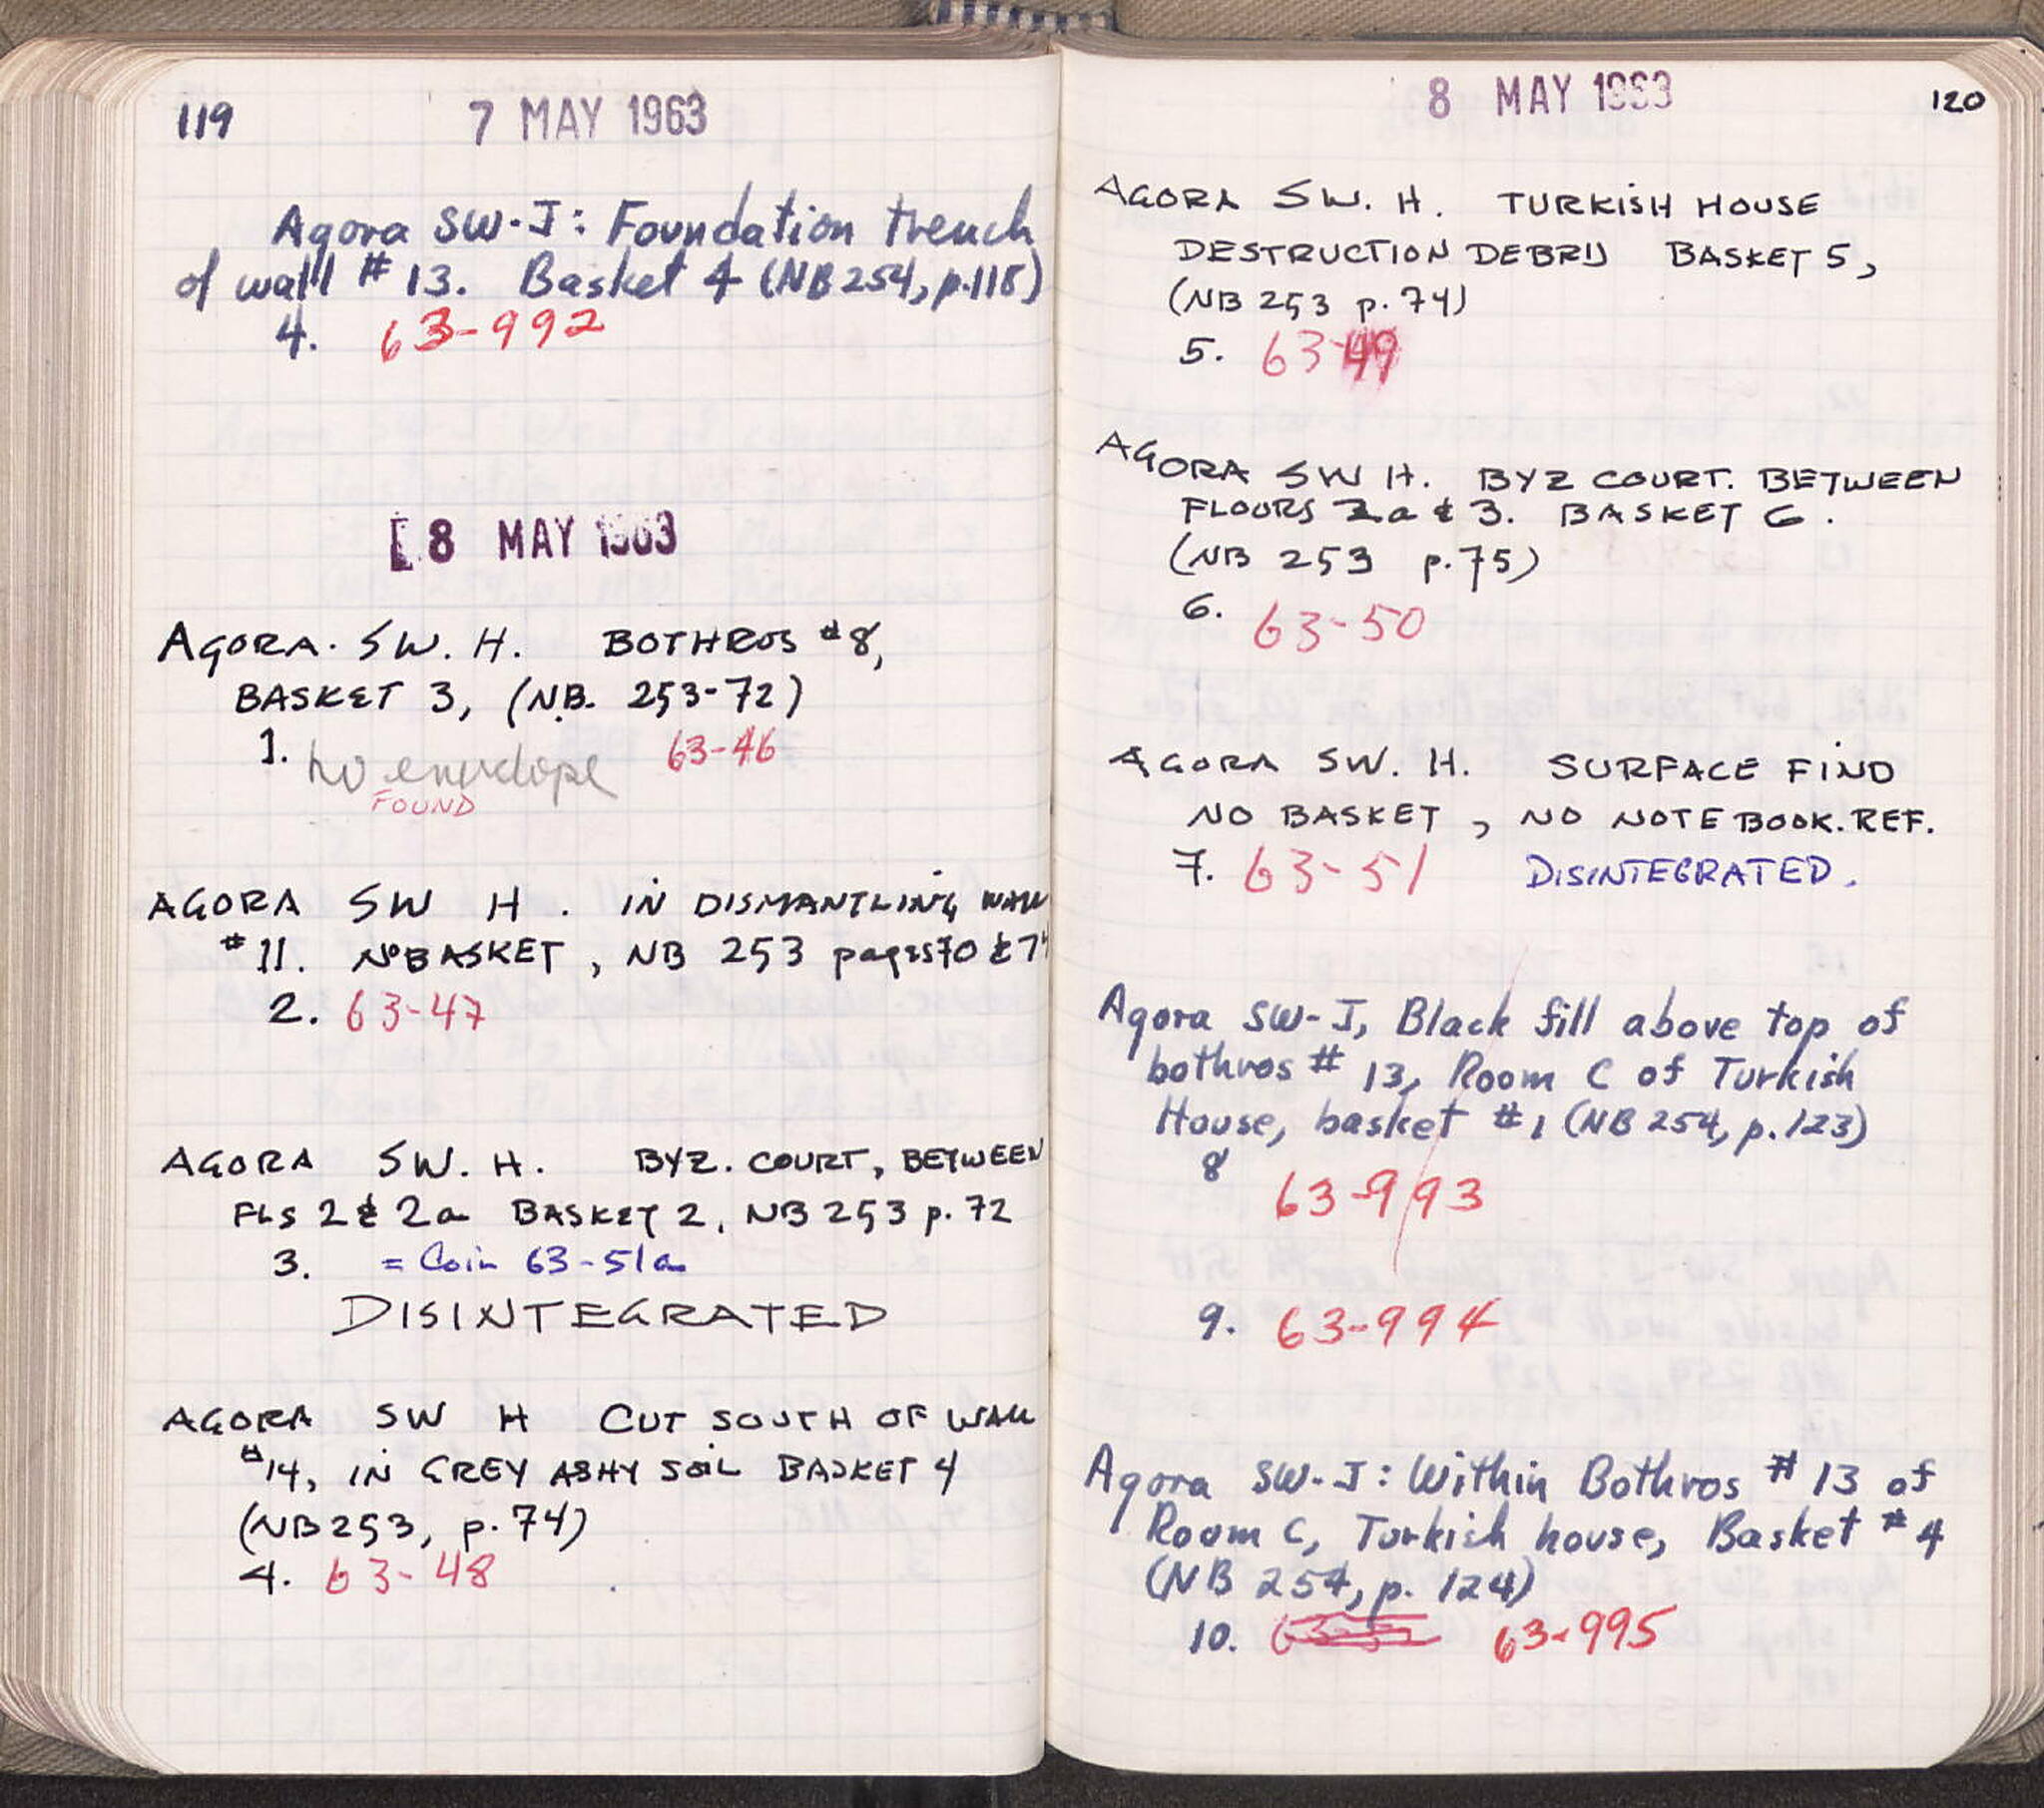 119
7 MAY 1963
Agora SW-J: Foundation trench
of wall # 13. Basket 4 (NB 254, p.118)
4. 63-992
8 MAY 1963
AGORA. SW. H. BOTHROS #8,
BASKET 3, (N.B. 253-72)
1. no envelope 63-46
FOUND
AGORA SW H. IN DISMANTLING WALL
#11. NO BASKET, NB 253 pages 70 & 74
2. 63-47
AGORA SW. H. BYZ. COURT, BETWEEN
FLS 2 & 2a BASKET 2, NB 253 p. 72
3. = Coin 63-51a
DISINTEGRATED
AGORA SW H CUT SOUTH OF WALL
#14, IN GREY ASHY SOIL BASKET 4
(NB 253, p. 74)
4. 63-48
8 MAY 1963
120
AGORA SW. H. TURKISH HOUSE
DESTRUCTION DEBRIS BASKET 5,
(NB 253 p. 74)
5. 63-49
AGORA SW H. BYZ COURT. BETWEEN
FLOORS 2a & 3. BASKET 6.
(NB 253 p. 75)
6. 63-50
AGORA SW. H. SURFACE FIND
NO BASKET, NO NOTEBOOK. REF.
7. 63-51 DISINTEGRATED.
Agora SW-J, Black fill above top of
bothros # 13, Room C of Turkish
House, basket #1 (NB 254, p. 123)
8 63-993
9. 63-994
Agora SW-J: Within Bothros # 13 of
Room C, Turkish house, Basket # 4
(NB 254, p. 124)
10. 63-995